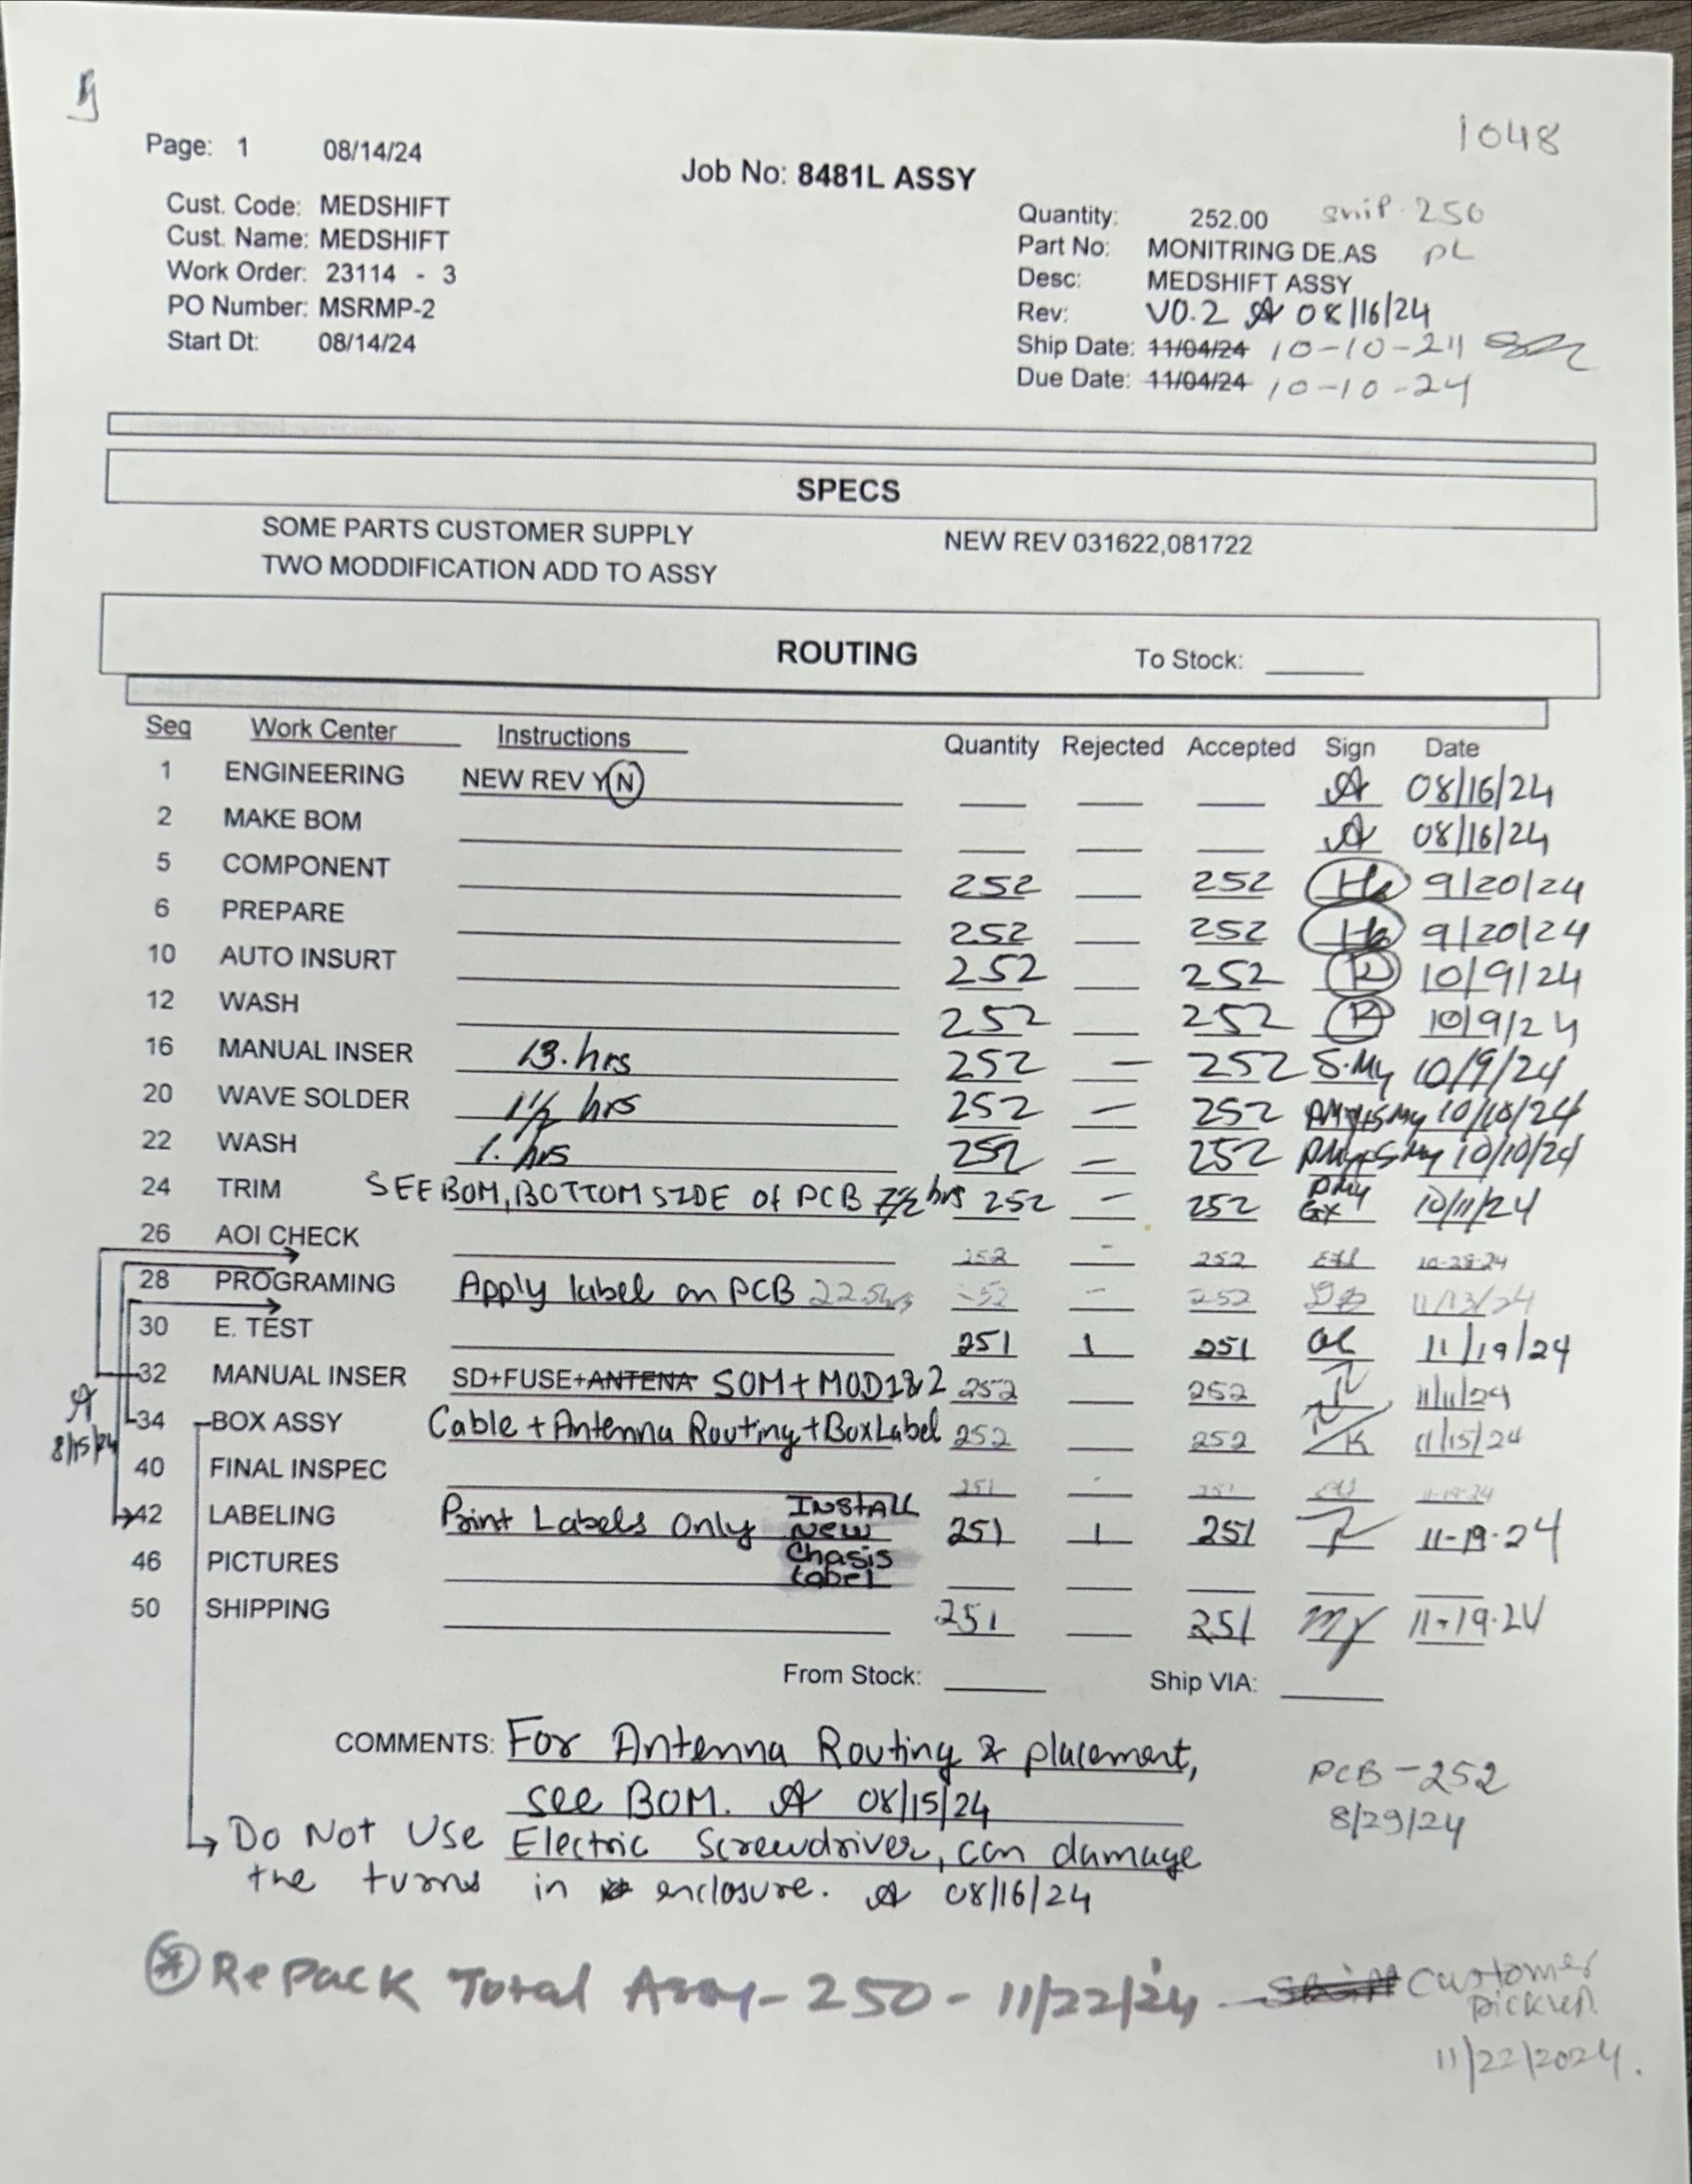 1048
Page: 1 08/14/24
Job No: 8481L ASSY
Cust. Code: MEDSHIFT
Cust. Name: MEDSHIFT
Work Order: 23114 - 3
PO Number: MSRMP-2
Start Dt: 08/14/24
Quantity: 252.00 ship 250
Part No: MONITRING DE.AS PL
Desc: MEDSHIFT ASSY
Rev: V0.2 08/16/24
Ship Date: 11/04/24 10-10-24
Due Date: 11/04/24 10-10-24
SPECS
SOME PARTS CUSTOMER SUPPLY NEW REV 031622,081722
TWO MODDIFICATION ADD TO ASSY
ROUTING To Stock:
Seq Work Center Instructions Quantity Rejected Accepted Sign Date
1 ENGINEERING NEW REV Y N 08/16/24
2 MAKE BOM 08/16/24
5 COMPONENT 252 252 9/20/24
6 PREPARE 252 252 9/20/24
10 AUTO INSURT 252 252 10/9/24
12 WASH 252 252 10/9/24
16 MANUAL INSER 13. hrs 252 — 252 S.My 10/9/24
20 WAVE SOLDER 1½ hrs 252 — 252 10/10/24
22 WASH 1. hrs 252 — 252 10/10/24
24 TRIM SEE BOM, BOTTOM SIDE of PCB 7½ hrs 252 — 252 10/11/24
26 AOI CHECK 252 - 252 10-28-24
28 PROGRAMING Apply label on PCB 22.5hrs 252 - 252 11/13/24
30 E. TEST 251 1 251 11/19/24
32 MANUAL INSER SD+FUSE+ANTENA SOM+MOD1&2 252 252 11/11/24
34 BOX ASSY Cable + Antenna Routing + Box Label 252 252 11/15/24
8/15/24
40 FINAL INSPEC 251 - 251 11-19-24
42 LABELING Print Labels Only INSTALL New Chasis Label 251 1 251 11-19-24
46 PICTURES
50 SHIPPING 251 251 11-19-24
From Stock: Ship VIA:
COMMENTS: For Antenna Routing & placement,
see BOM. 08/15/24
PCB-252
8/29/24
Do Not Use Electric Screwdriver, can damage
the turns in enclosure. 08/16/24
* RePack Total Assy - 250 - 11/22/24 Customer
pickup.
11/22/2024.